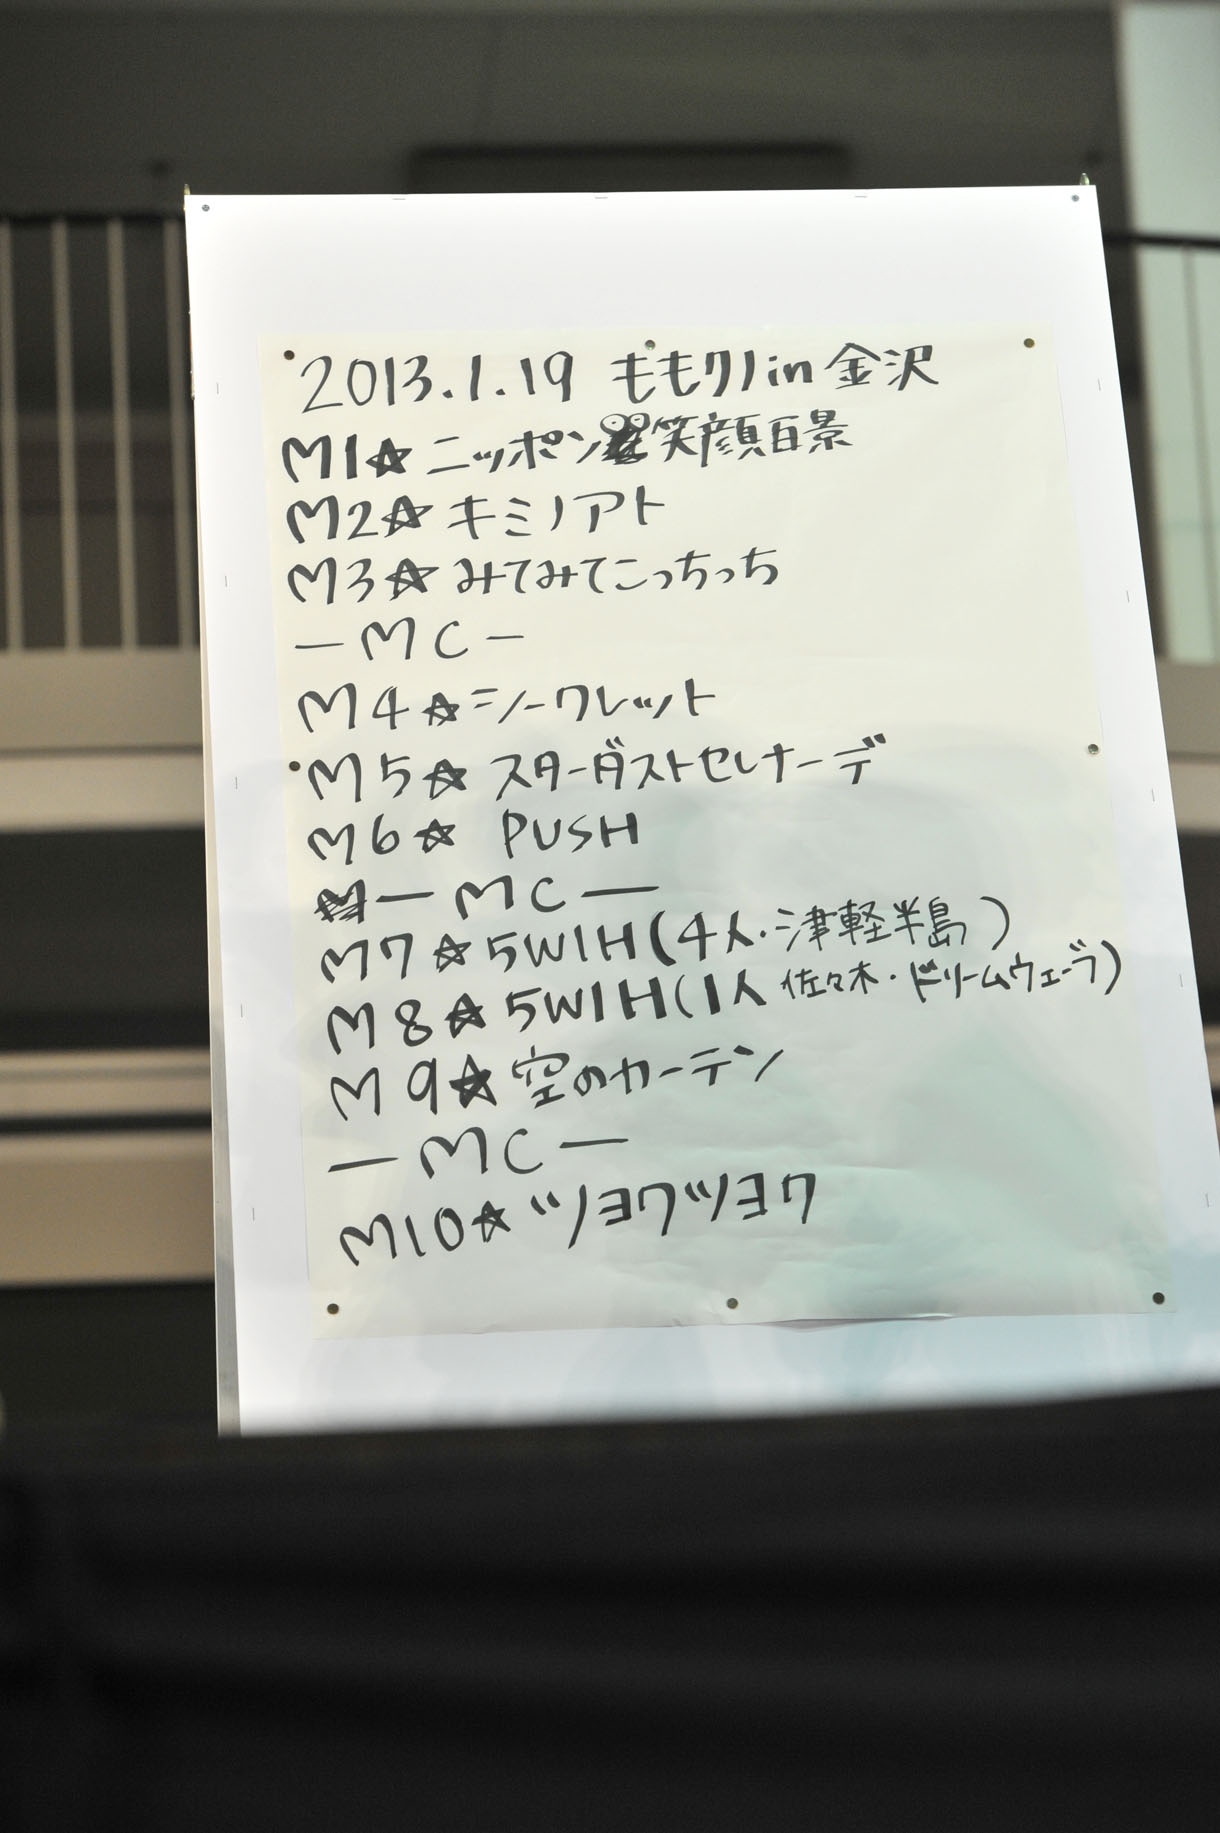 2013.1.19 ももクノin金沢
M1☆ニッポン笑顔百景
M2☆キミノアト
M3☆みてみてこっちっち
ーMCー
M4☆シークレット
M5☆スターダストセレナーデ
M6☆ PUSH
ーMCー
M7☆5W1H(4人・津軽半島)
M8☆5W1H(1人 佐々木・ドリームウェーブ)
M9☆空のカーテン
ーMCー
M10☆ツヨクツヨク